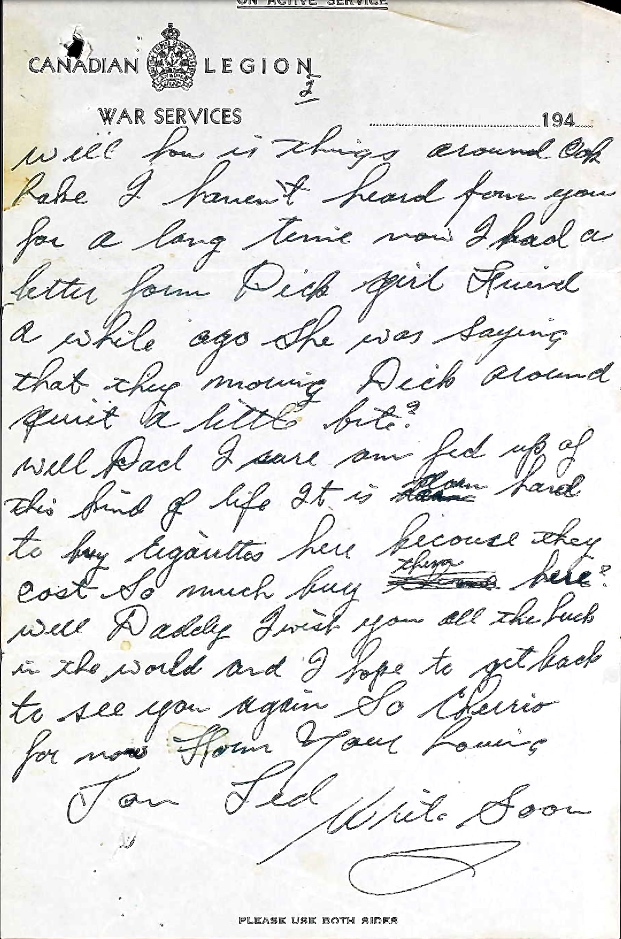 ON ACTIVE SERVICE
CANADIAN LEGION
2
WAR SERVICES
194
will how is things around Oak
Lake I haven't heard form you
for a long time now I had a
letter form Dick girl Friend
a while ago She was saying
that they moving Dick around
quit a little bite?
Well Dad I sure am fed up of
this kind of life It is hard
to buy Cigarettes here becouse they
cost So much buy them here?
well Daddy I wish you all the luck
in the world and I hope to get back
to see you again So Cherrio
for now From Your Loving
Son Ted Write Soon
PLEASE USE BOTH SIDES